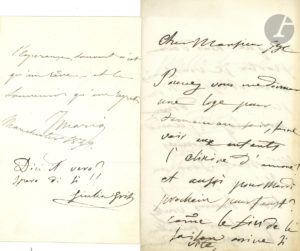 l'Espérance souvent n'est
qu'un rêve et le
souvenir qu'un regret
Mario
Manchester
Dici il vero?
Spero di sì!!
Giulia Grisi
Cher Monsieur
Pouvez vous me donner
une loge pour
demain au soir, pour
mes enfants
(l'elisire d'amore)
et aussi pour Mardi
prochain pour faust?
comme la fin de la
saison arrive si
vite